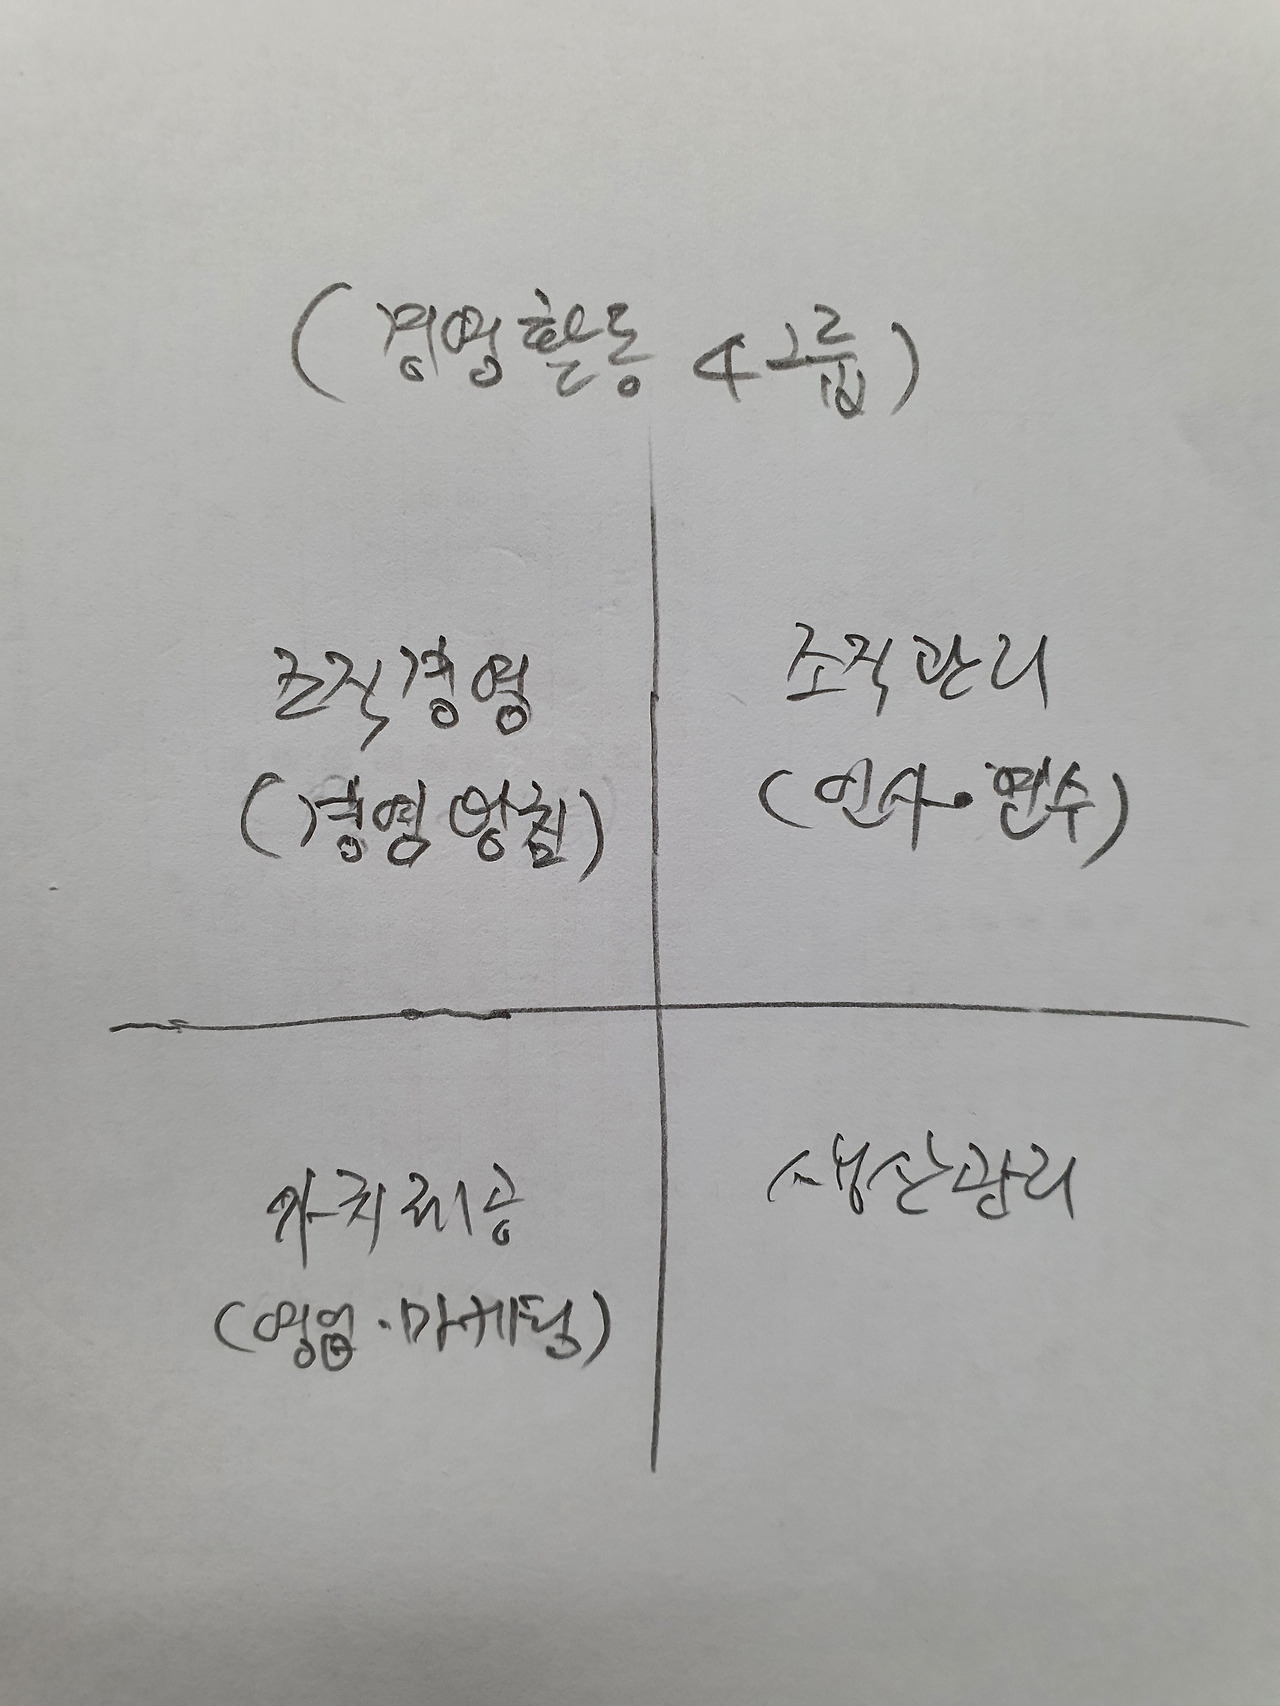 (경영활동 4그룹)
조직경영
(경영방침)
조직관리
(인사·연수)
가치제공
(영업·마케팅)
생산관리